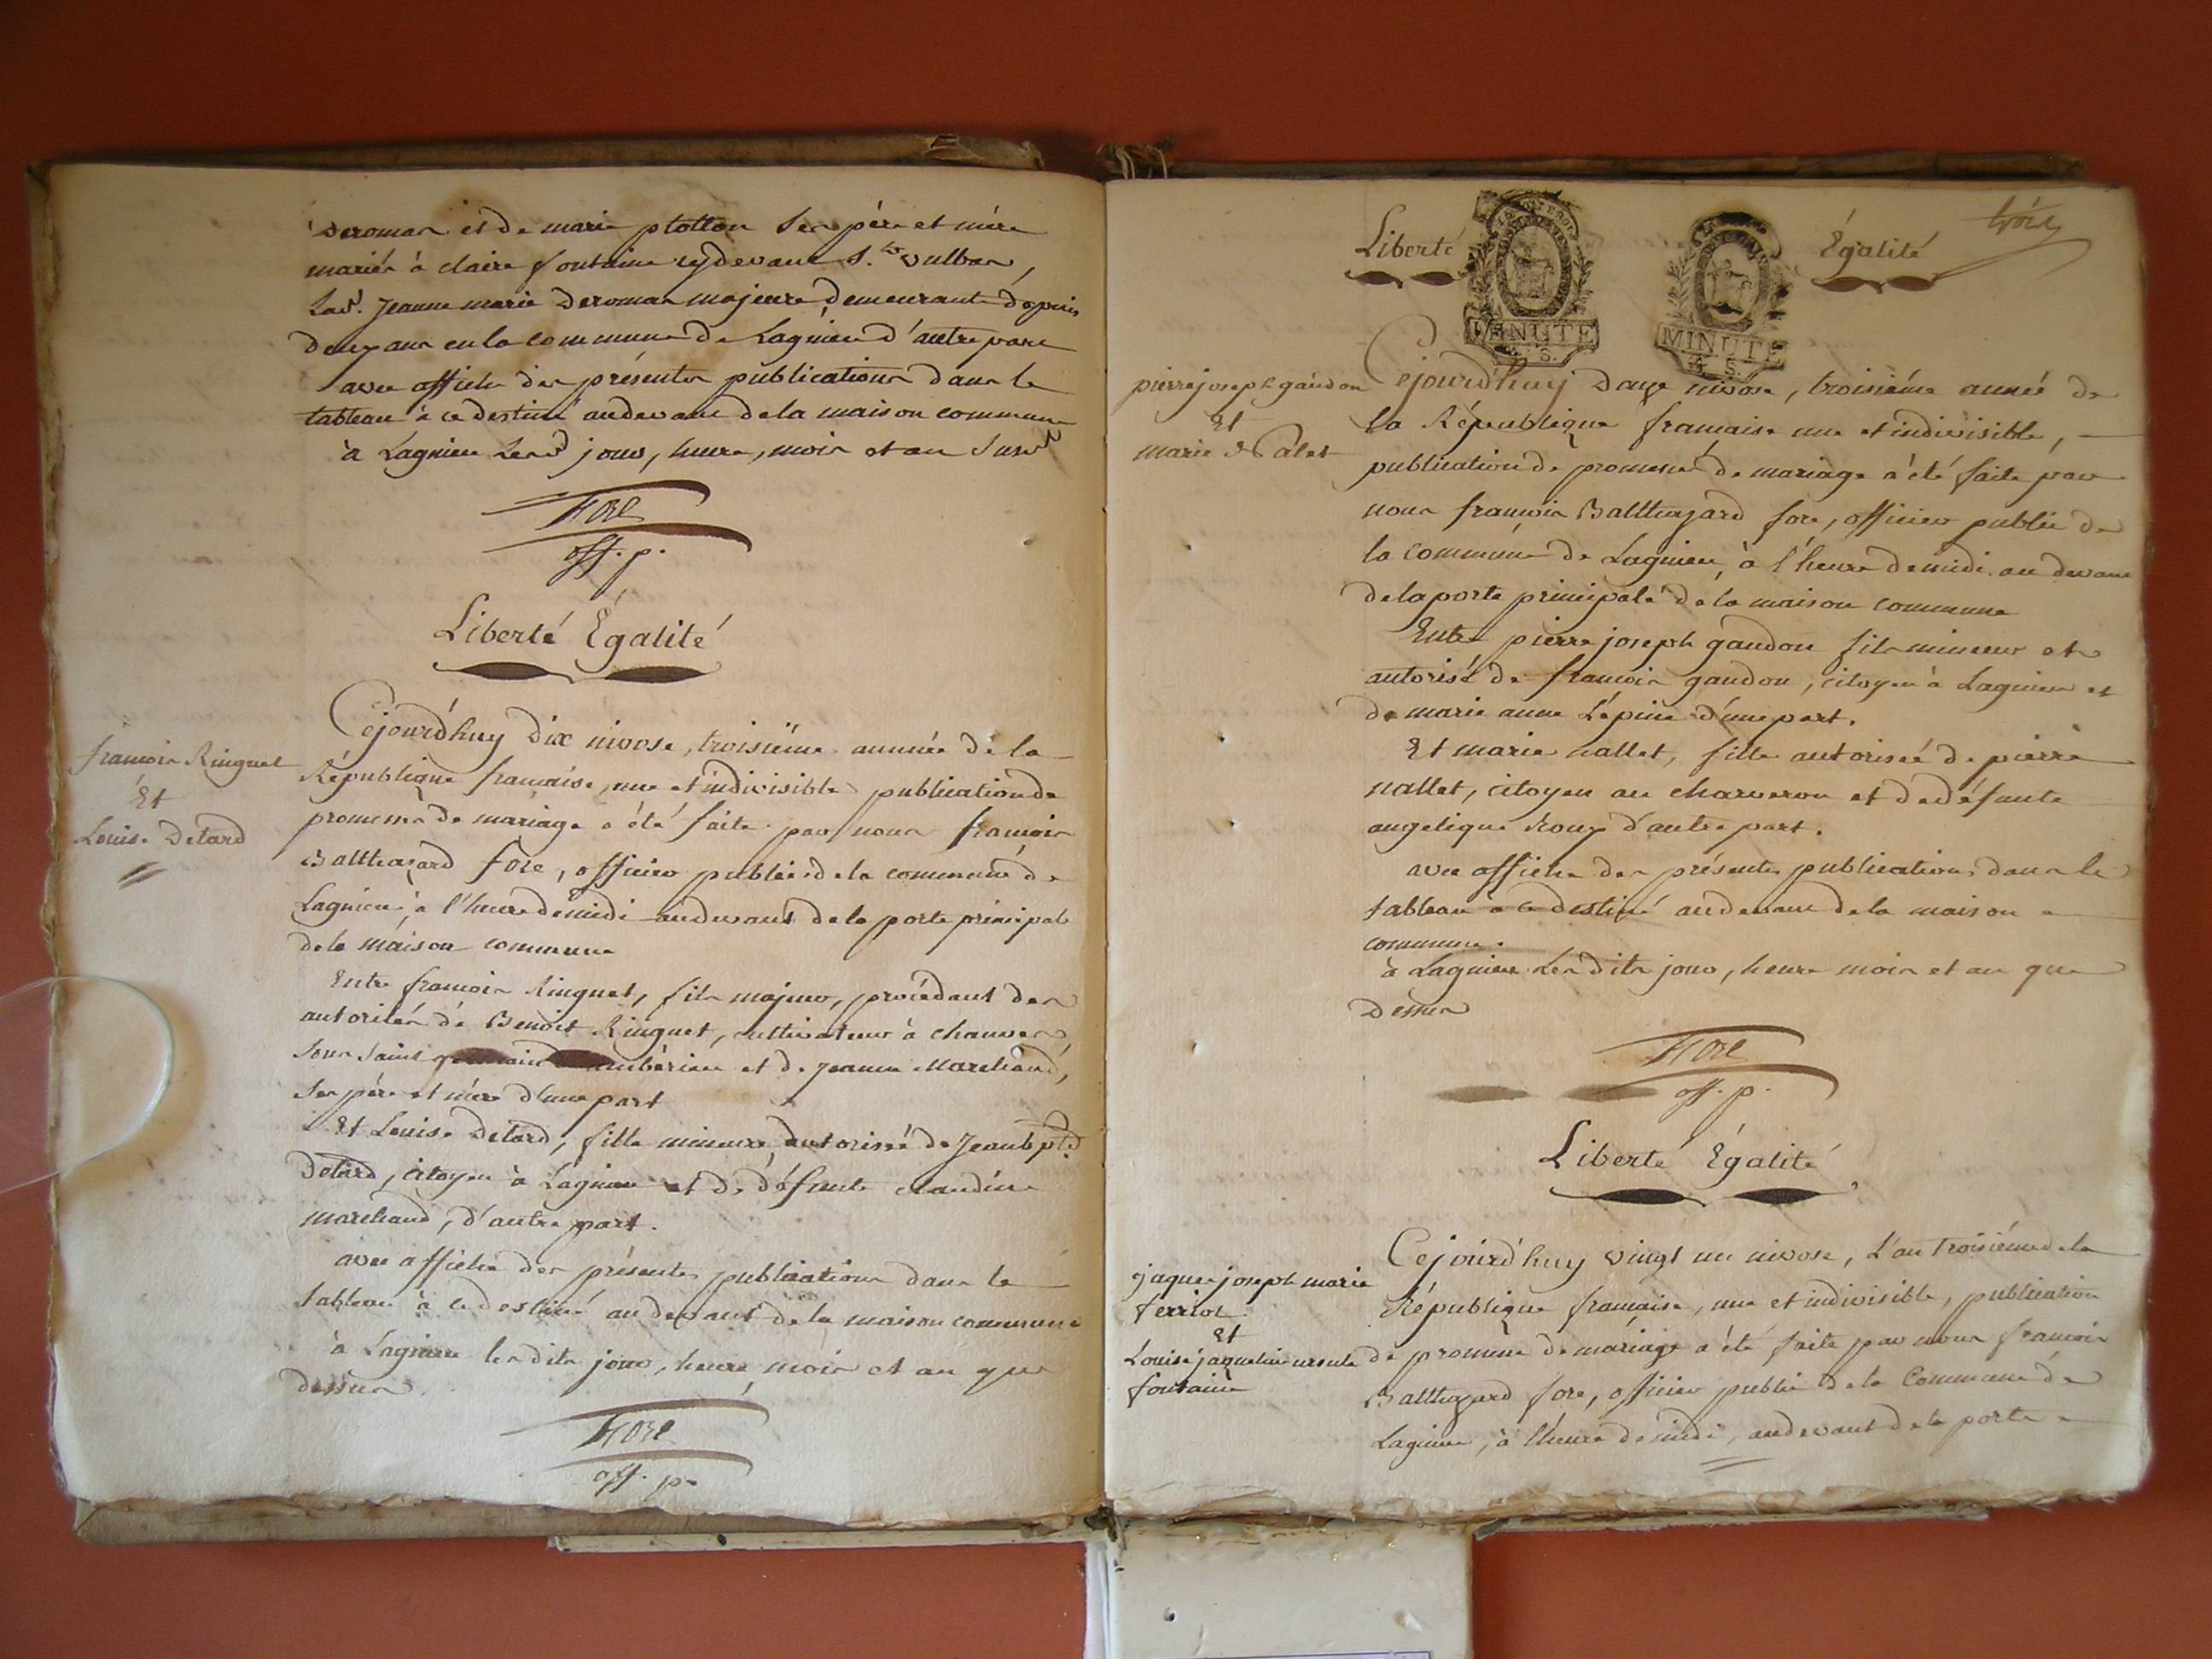 Deroman et de marie plotton Ses père et mère
mariés à claire fontaine cydevant S.te vulbas,
Lad. Jeanne marie Deroman majeure demeurante depuis
deux ans en la commune de Lagnieu d'autre part
avec affiche des présentes publications dans le
tableau à ce destiné audevant de la maison commune
à Lagnieu Lesd jour, heure, mois et an Susd
Fore
off. p.
Liberté Égalité
françois Ringuet
Et
Louise Detard
Cejourd'huy dix nivose, troisième année de la
République française, une et indivisible publication de
promesses de mariage a été faite par nous françois
Balthazard fore, officier public de la commune de
Lagnieu, à l'heure de midi audevant de la porte principale
de la maison commune
Entre françois Ringuet, fils majeur, procédant des
autorités de Benoit Ringuet, cultivateur à chauver
sous saint germain ambérieu et de jeanne Marchand,
Ses père et mère d'une part
Et Louise Detard, fille mineure, autorisée de Jean bpte
Detard, citoyen à Lagnieu et de défunte claudine
marchand, d'autre part.
avec affiche des présentes publications dans le
tableau à ce destiné audevant de la maison commune
à Lagnieu les dits jour, heure, mois et an que
dessus.
Fore
off. p.
Liberté
MINUTE
S.
MINUTE
4 S.
Égalité
pierre joseph gaudon
Et
marie Nalet
Cejourd'huy douze nivose, troisième année de
la République française une et indivisible,
publication de promesses de mariage a été faite par
nous françois Balthazard fore, officier public de
la commune de Lagnieu, à l'heure de midi au devant
de la porte principale de la maison commune
Entre pierre joseph gaudon fils mineur et
autorisé de françois gaudon, citoyen à Lagnieu et
de marie anne Lépine d'une part.
Et marie nallet, fille autorisée de pierre
nallet, citoyen au charveron et de défunte
angelique Roux d'autre part.
avec affiche des présentes publications dans le
tableau à ce destiné audevant de la maison
commune.
à Lagnieu Les dits jour, heure mois et an que
Dessus
Fore
off. p.
Liberté Égalité
jaques joseph marie
ferriot
Et
Louise jaqueline ursule
fontaine
Cejourd'huy vingt un nivose, L'an troisième de la
République française, une et indivisible, publication
de promesse de mariage a été faite par nous françois
Balthazard fore, officier public de la Commune de
Lagnieu, à l'heure de midi, audevant de la porte